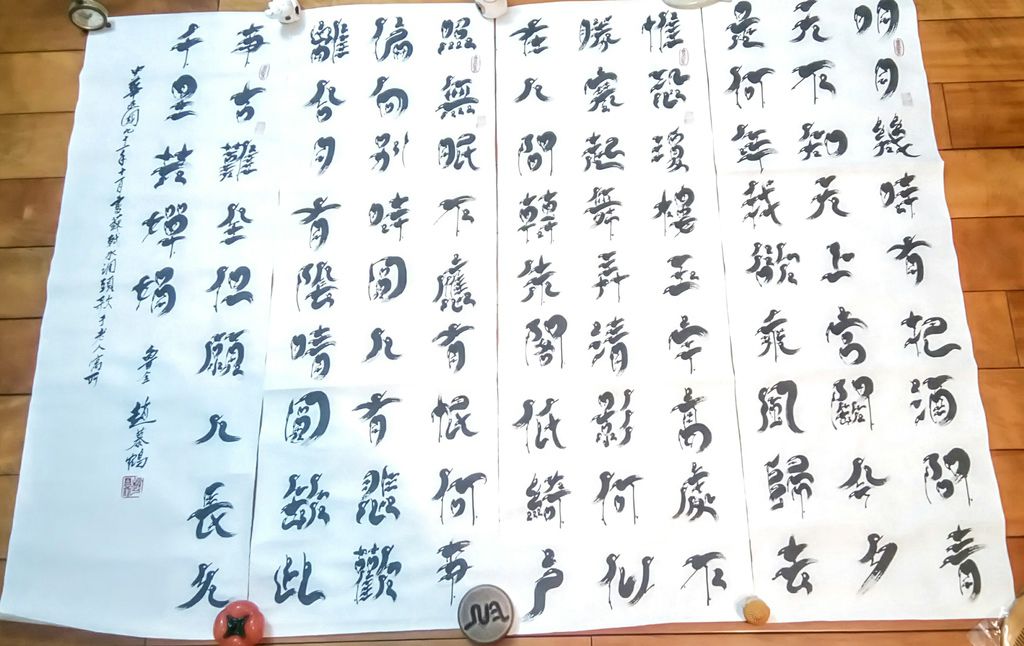 明月幾時有把酒問青
天不知天上宮闕今夕
是何年我欲乘風歸去
惟恐瓊樓玉宇高處不
勝寒起舞弄清影何似
在人間轉朱閣低綺戶
照無眠不應有恨何事
偏向別時圓人有悲歡
離合月有陰晴圓缺此
事古難全但願人長久
千里共嬋娟
中華民國九十三年十一月書蘇軾水調頭歌于老人寓所
魯金 趙慕鶴